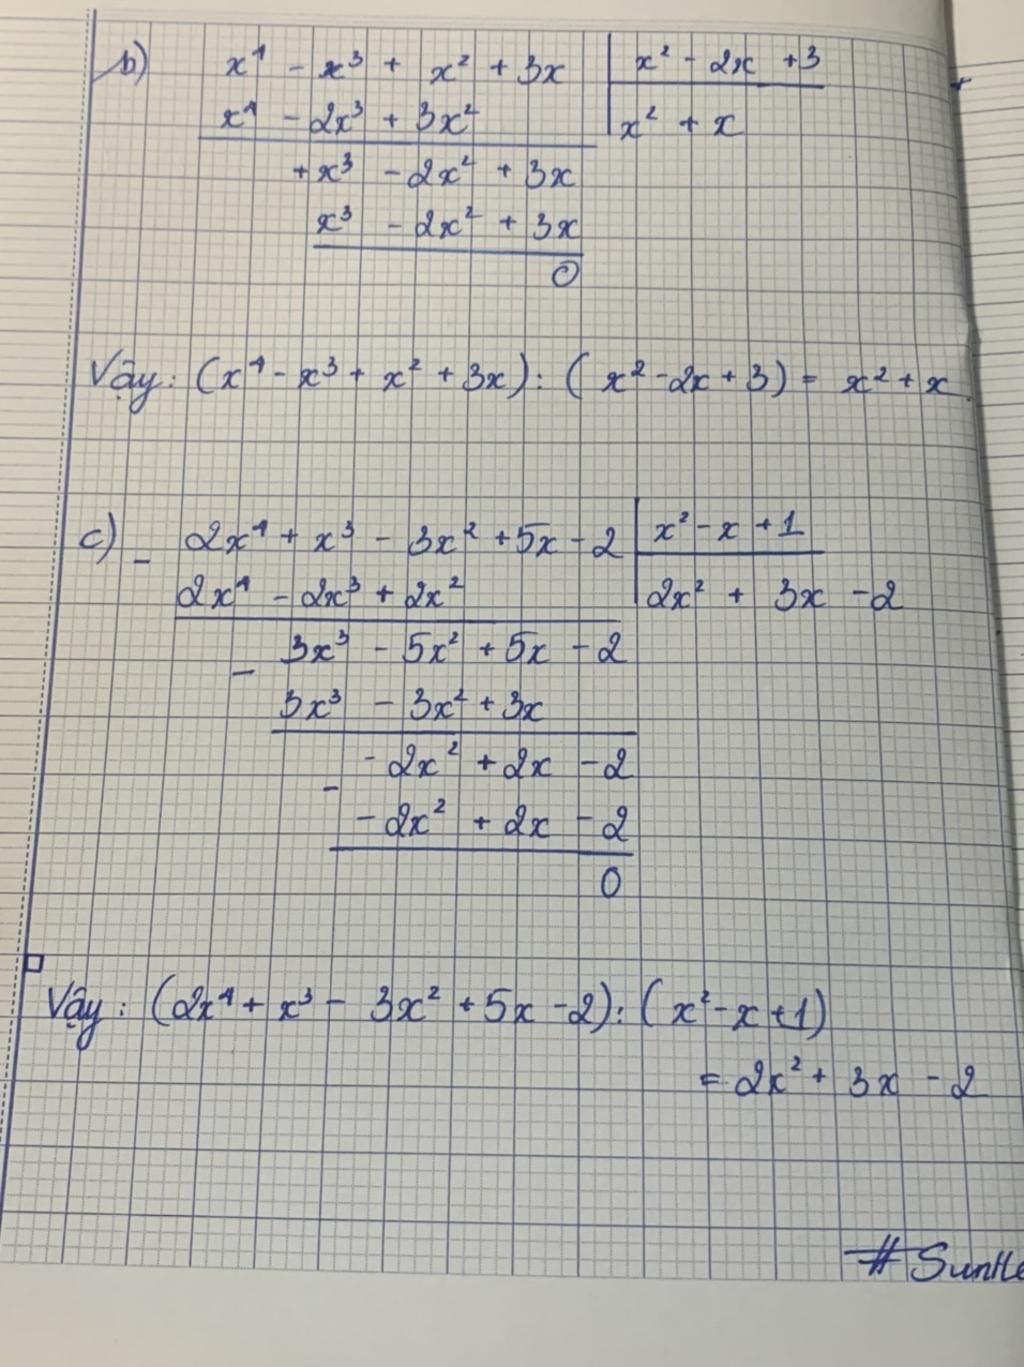 b) x⁴ - x³ + x² + 3x | x² - 2x + 3
x⁴ - 2x³ + 3x² | x² + x
+ x³ - 2x² + 3x
x³ - 2x² + 3x
0
Vậy: (x⁴ - x³ + x² + 3x) : (x² - 2x + 3) = x² + x
c) - 2x⁴ + x³ - 3x² + 5x - 2 | x² - x + 1
2x⁴ - 2x³ + 2x² | 2x² + 3x - 2
- 3x³ - 5x² + 5x - 2
3x³ - 3x² + 3x
- -2x² + 2x - 2
-2x² + 2x - 2
0
Vậy: (2x⁴ + x³ - 3x² + 5x - 2) : (x² - x + 1)
= 2x² + 3x - 2